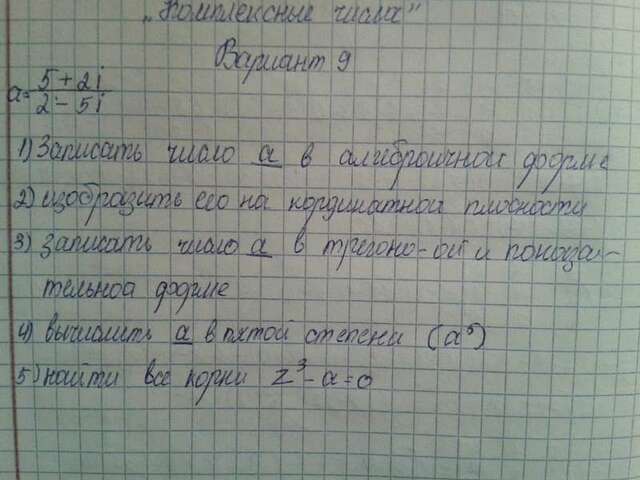 „Комплексные числа"
Вариант 9
a = 5 + 2i / 2 - 5i
1) Записать число a в алгиброичной форме
2) изобразить его на кординатной плоскости
3) Записать число a в тригоно-ой и показа-
тельной форме
4) вычислить a в пятой степени (a⁵)
5) найти все корни z³ - a = 0